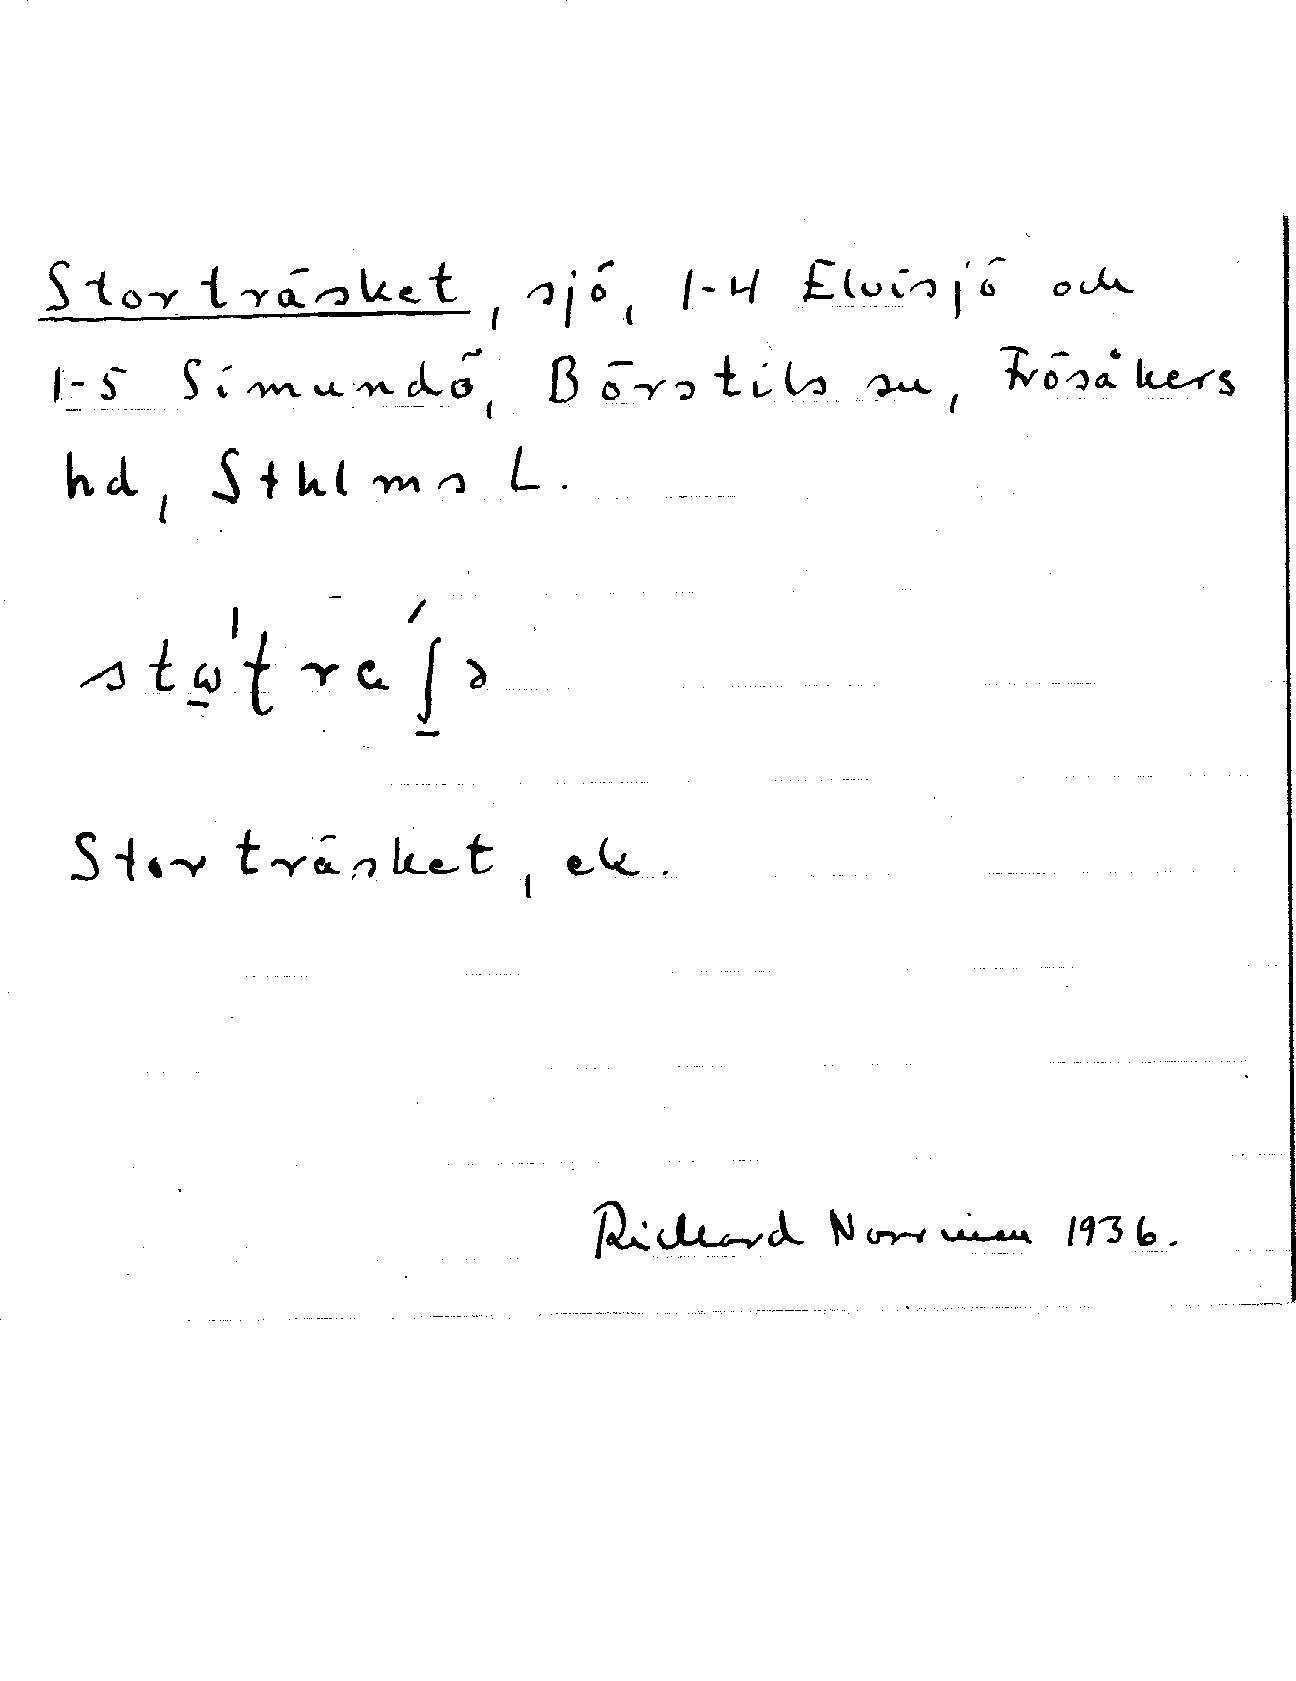 Storträsket, sjö, 1-4 Elvisjö och
1-5 Simundö, Börstils sn, Frösåkers
hd, Sthlms L.
Storträsket, ek.
Rickard Norrman 1936.